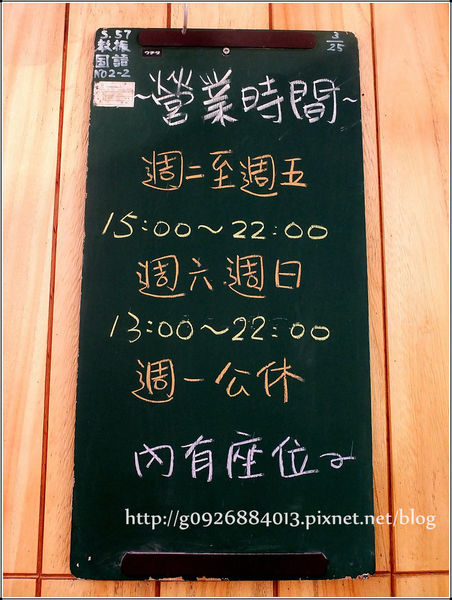 S.57
教振
国語
NO2-2
3/25
ウチダ
~營業時間~
週二至週五
15:00~22:00
週六.週日
13:00~22:00
週一公休
內有座位~
http://g0926884013.pixnet.net/blog